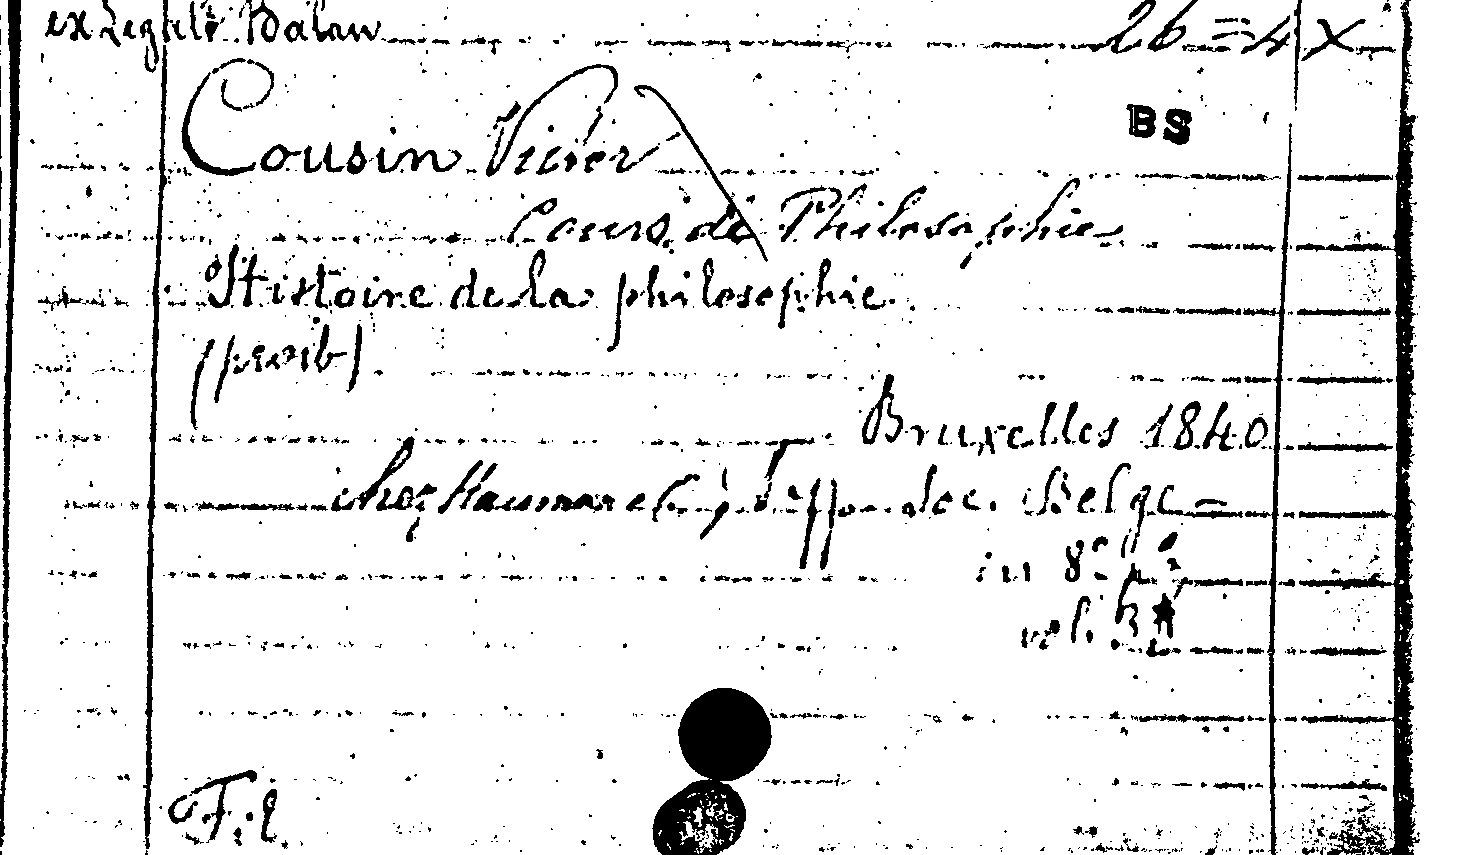 ex Legato Balan 26=4 X
BS
Cousin Victor
Cours de Philosophie
Histoire de la philosophie.
(proib)
Bruxelles 1840
chez Hauman e C. Typpo. de c. Belge =
in 8°
vol. 3